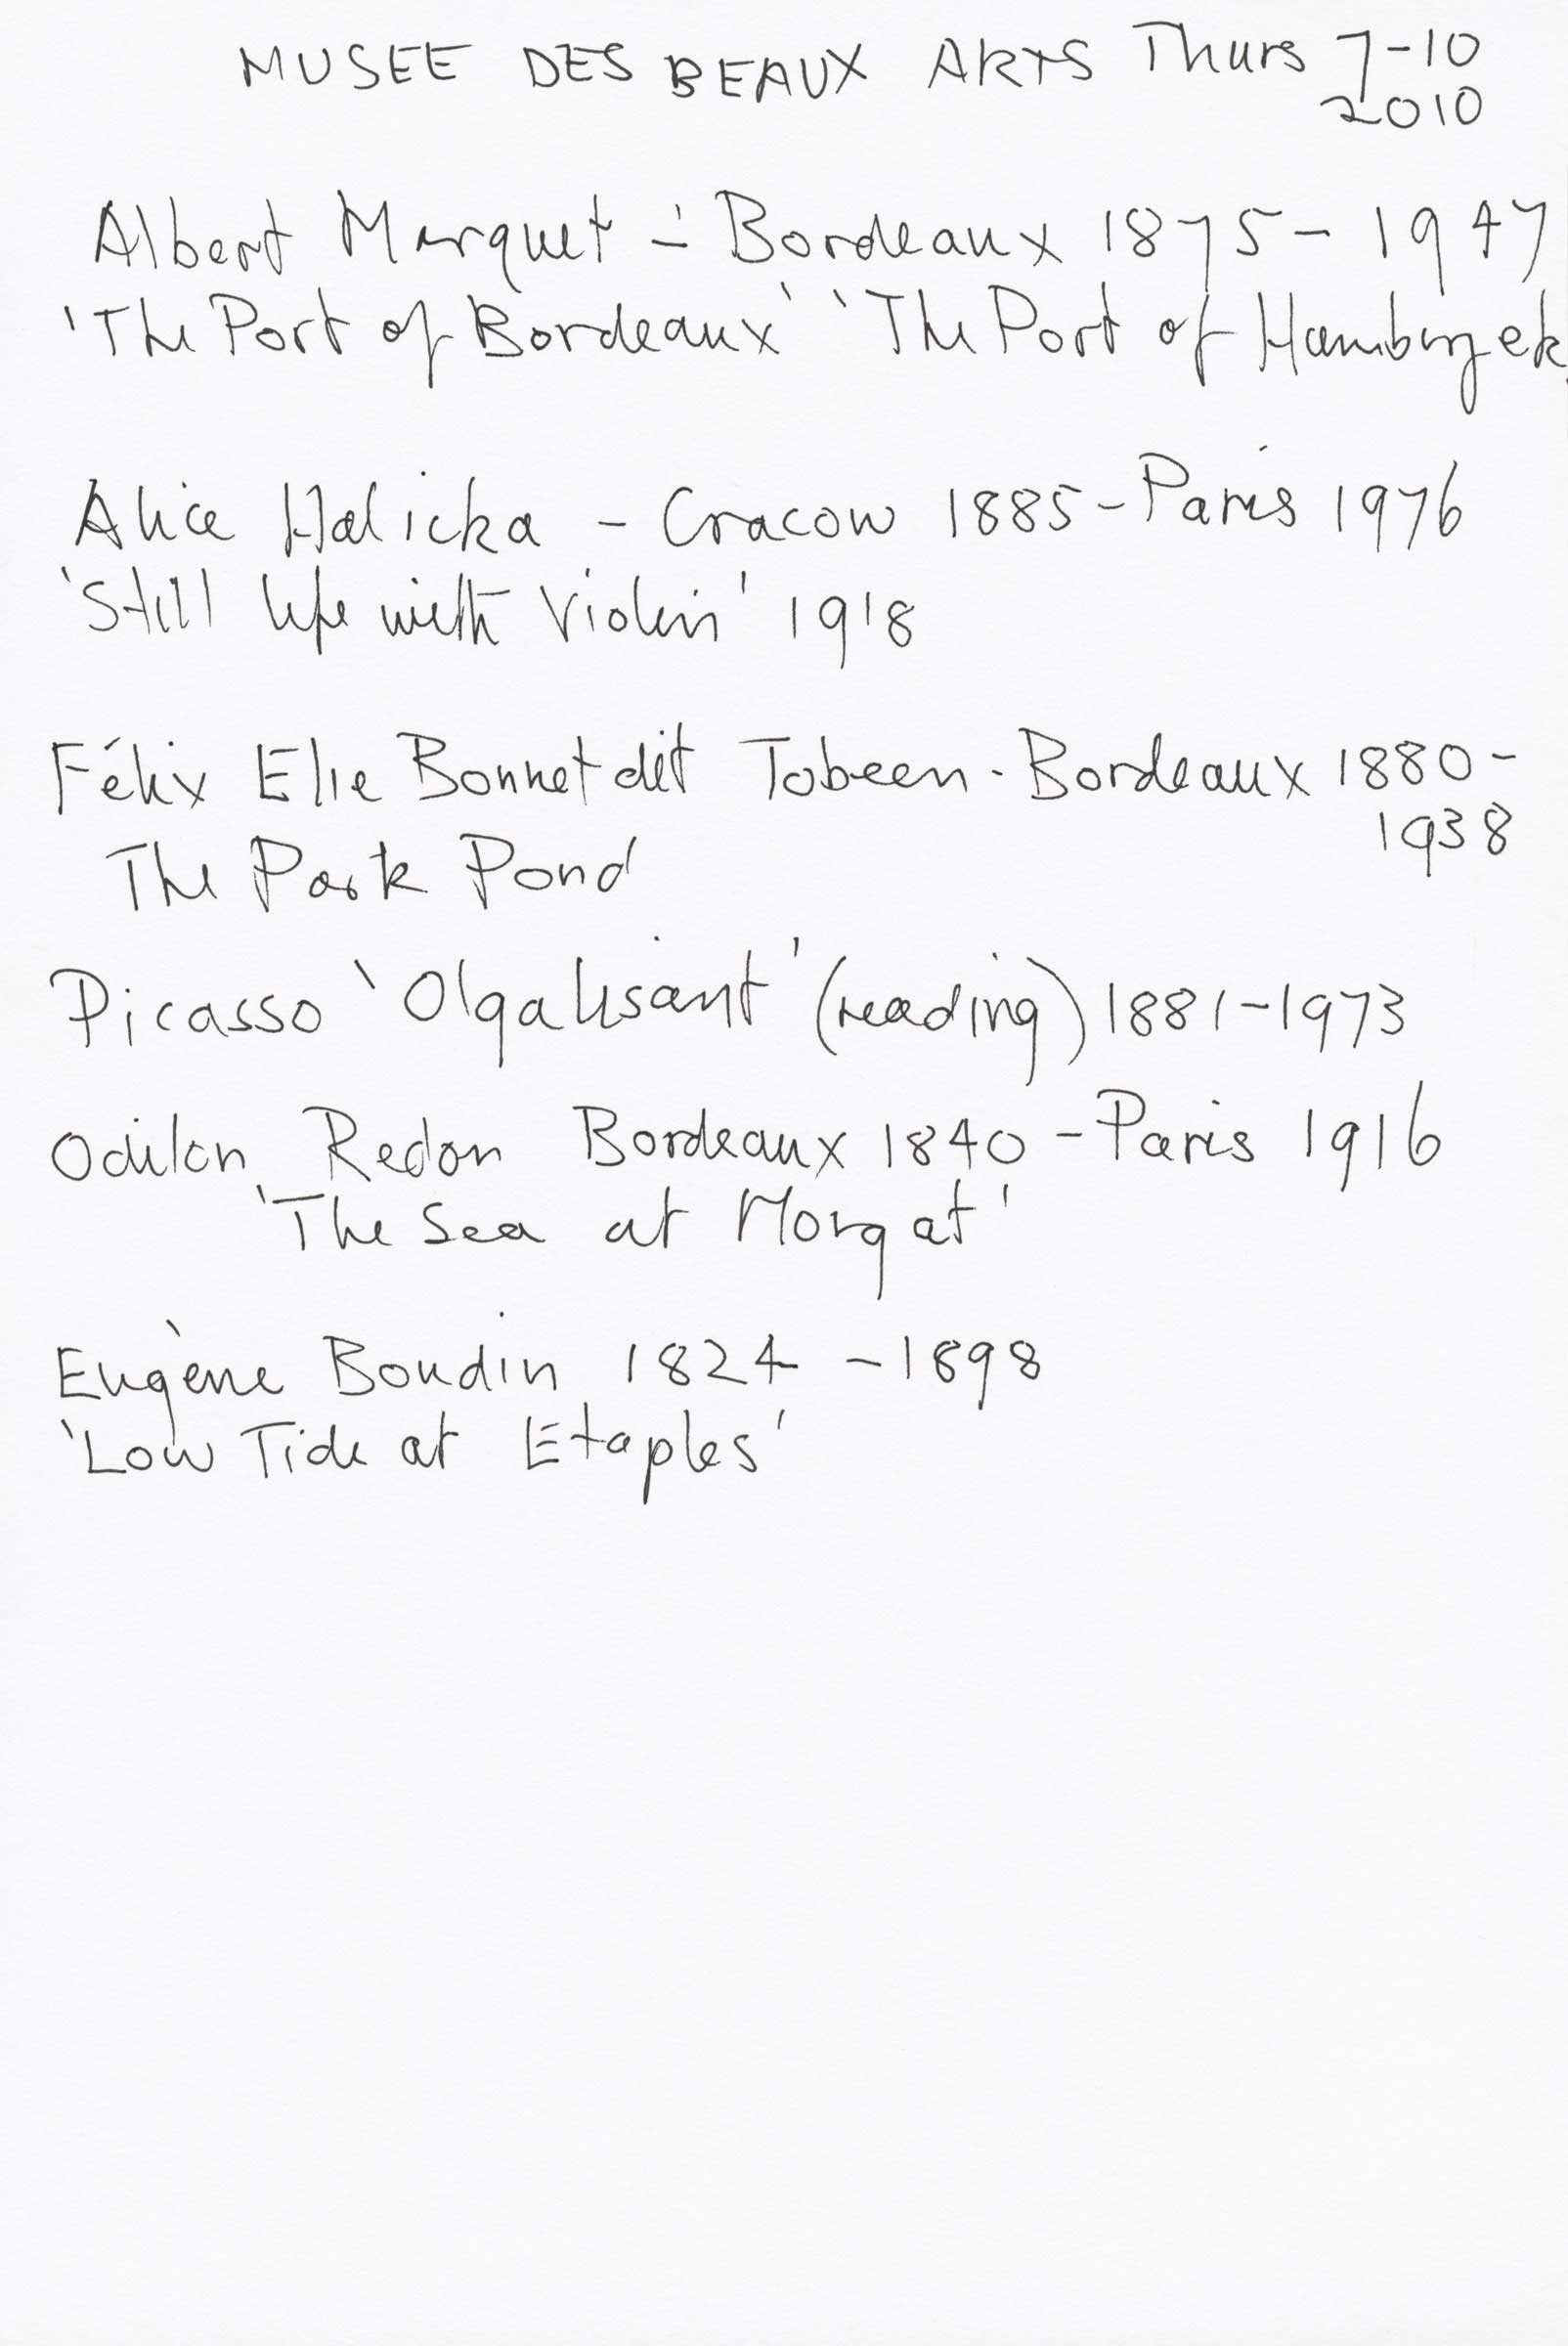 MUSEE DES BEAUX ARTS Thurs 7-10
2010
Albert Marquet - Bordeaux 1875 - 1947
'The Port of Bordeaux' 'The Port of Hamburg etc.
Alice Halicka - Cracow 1885 - Paris 1976
'Still life with Violin' 1918
Félix Elie Bonnet dit Tobeen - Bordeaux 1880 -
1938
The Park Pond
Picasso 'Olga lisant' (reading) 1881-1973
Odilon Redon Bordeaux 1840 - Paris 1916
'The Sea at Morgat'
Eugène Boudin 1824 - 1898
'Low Tide at Etaples'